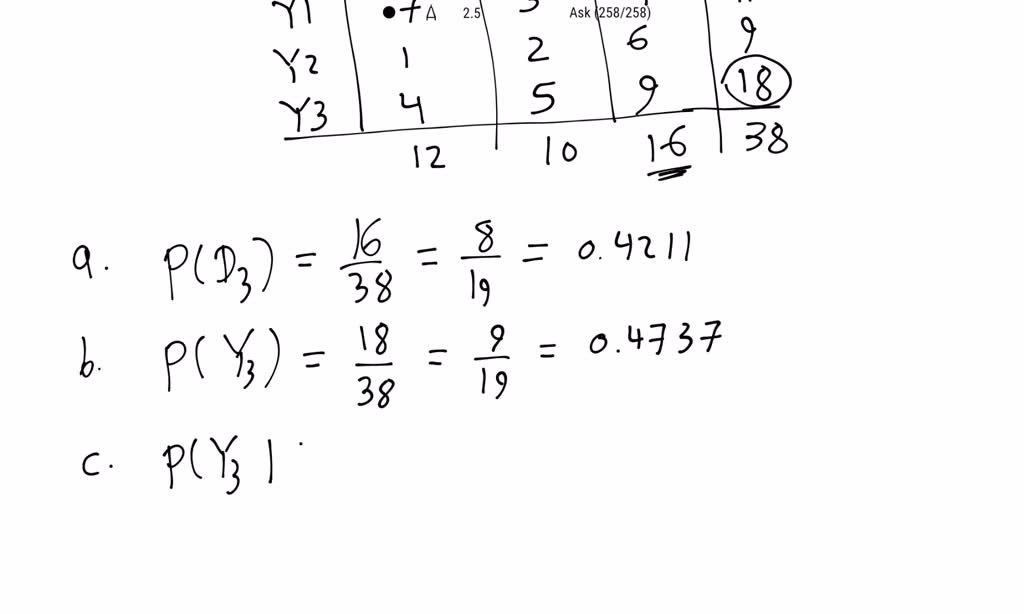 Y1 7 3 1 11
2.5 Ask (258/258)
Y2 1 2 6 9
Y3 4 5 9 18
12 10 16 38
a. P(D3) = 16/38 = 8/19 = 0.4211
b. P(Y3) = 18/38 = 9/19 = 0.4737
c. P(Y3 |